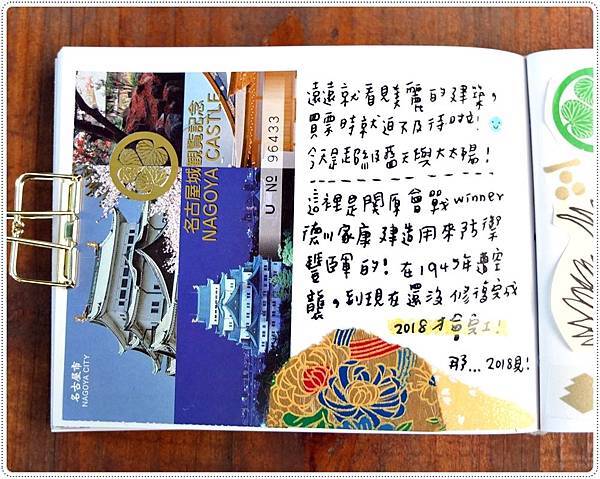 名古屋城観覧記念
NAGOYA CASTLE
U No 96433
名古屋市
NAGOYA CITY
遠遠就看見美麗的建築，
買票時就迫不及待啦!
今天是超級藍天與大太陽!
這裡是関原會戰winner
德川家康建造用來防禦
豐臣軍的!在1945年遭空
襲，到現在還沒修復完成
2018才會完工!
那...2018見!